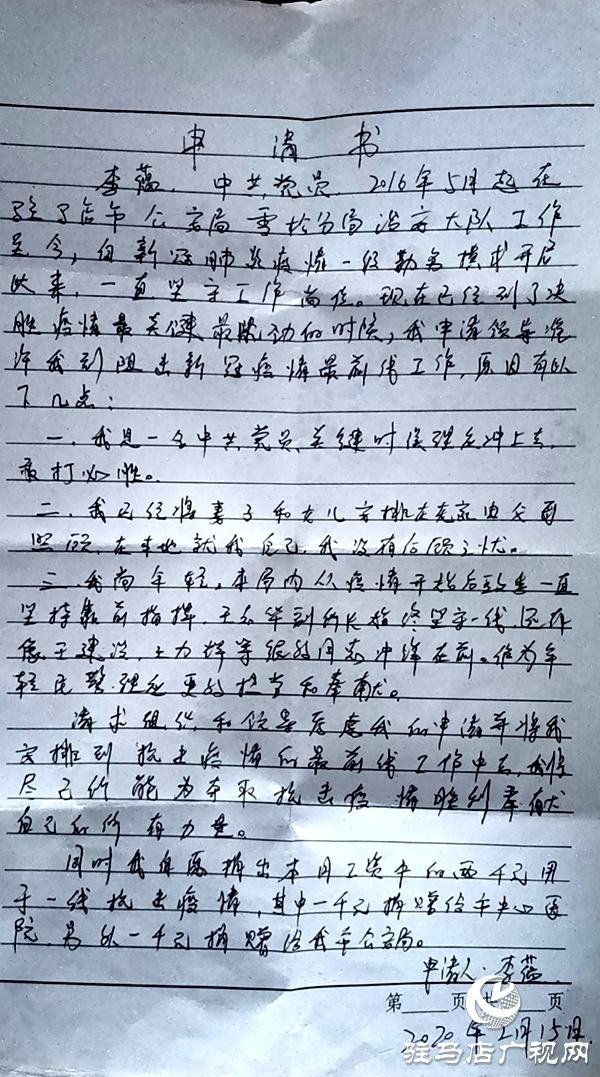 申请书
李蕴，中共党员，2016年5月起在
驻马店市公安局雪松分局治安大队工作
至今，自新冠肺炎疫情一级勤务模式开启
以来，一直坚守工作岗位。现在已经到了决
胜疫情最关键最吃劲的时候，我申请领导准
许我到阻击新冠疫情最前线工作，原因有以
下几点：
一、我是一名中共党员，关键时候理应冲上去，
敢打必胜。
二、我已经将妻子和女儿安排在老家由父母
照顾，在本地就我自己，我没有后顾之忧。
三、我尚年轻，本局内从疫情开始后 一直
坚持靠前指挥，王 副所长始终坚守一线，还有
像王建设、王力辉等很多同志冲锋在前。作为年
轻民警理应更多担当和奉献。
请求组织和领导考虑我的申请并将我
安排到抗击疫情的最前线工作中去，我将
尽己所能为夺取抗击疫情胜利奉献
自己的所有力量。
同时我自愿捐出本月工资中的两千元用
于一线抗击疫情，其中一千元捐赠给市中心医
院，另外一千元捐赠给我市公安局。
申请人：李蕴
第 页 共 页
2020年2月15日
驻马店广视网